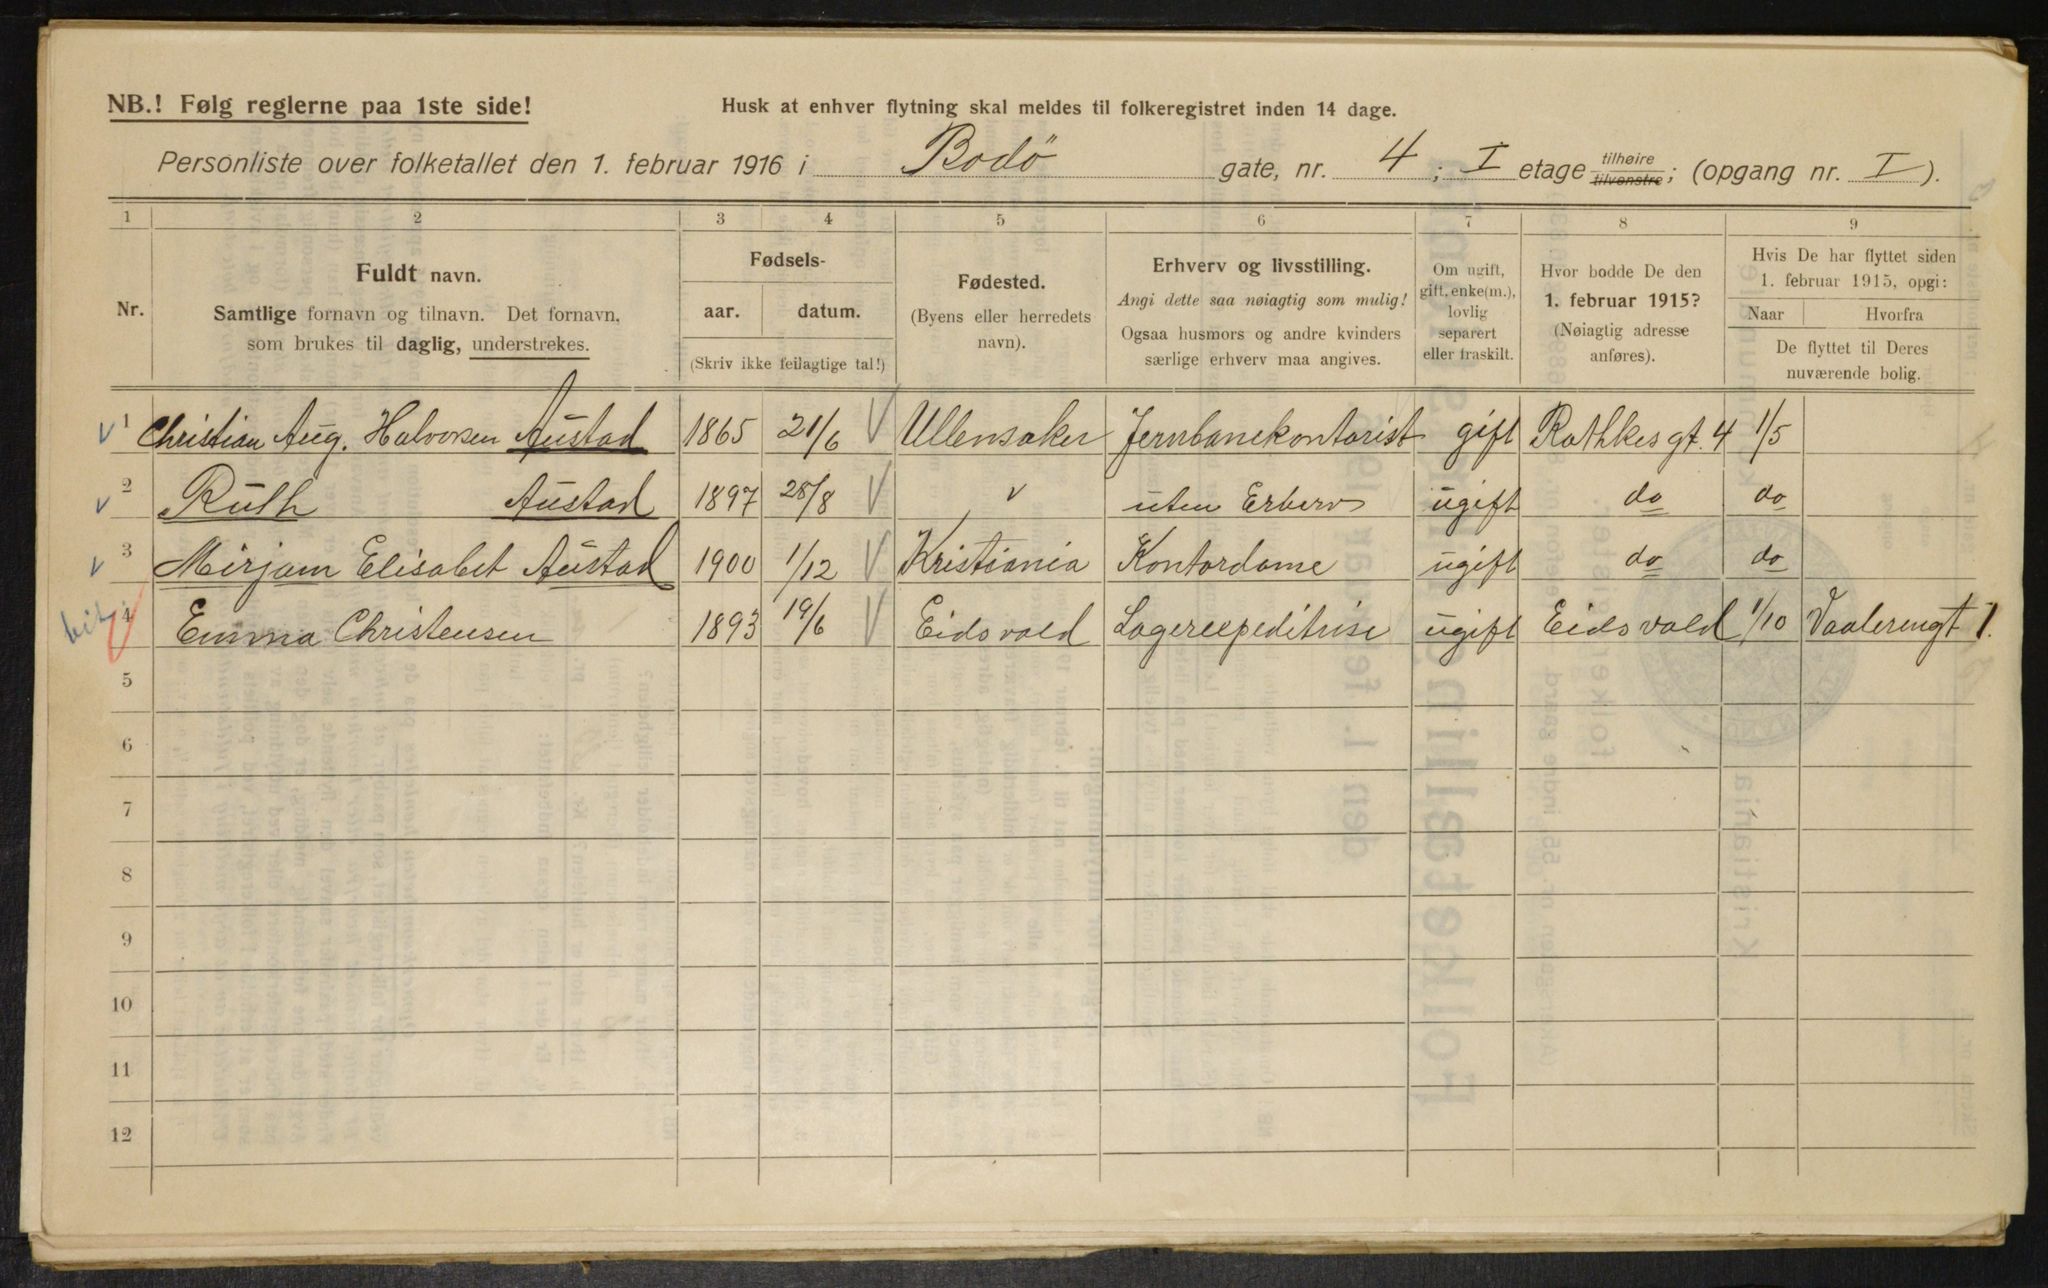 NB.! Følg reglerne paa 1ste side!
Husk at enhver flytning skal meldes til folkeregistret inden 14 dage.
Personliste over folketallet den 1. februar 1916 i Bodö gate, nr. 4 ; I etage tilhøire tilvenstre; (opgang nr. I ).
1 2 3 4 5 6 7 8 9
Nr.
Fuldt navn.
Samtlige fornavn og tilnavn. Det fornavn,
som brukes til daglig, understrekes.
Fødsels-
aar. datum.
(Skriv ikke feilagtige tal!)
Fødested.
(Byens eller herredets
navn).
Erhverv og livsstilling.
Angi dette saa nøiagtig som mulig!
Ogsaa husmors og andre kvinders
særlige erhverv maa angives.
Om ugift,
gift, enke(m.),
lovlig
separert
eller fraskilt.
Hvor bodde De den
1. februar 1915?
(Nøiagtig adresse
anføres).
Hvis De har flyttet siden
1. februar 1915, opgi:
Naar Hvorfra
De flyttet til Deres
nuværende bolig.
1 Christian Aug. Halvorsen Austad 1865 21/6 Ullensaker Jernbanekontorist gift Rathkes gt. 4 1/5
2 Ruth Austad 1897 28/8 " uten Erhverv ugift do do
3 Mirjam Elisabet Austad 1900 1/12 Kristiania Kontordame ugift do do
4 Emma Christensen 1893 19/6 Eidsvold Lagerexpeditrise ugift Eidsvold 1/10 Vaalerengt 1.
5
6
7
8
9
10
11
12